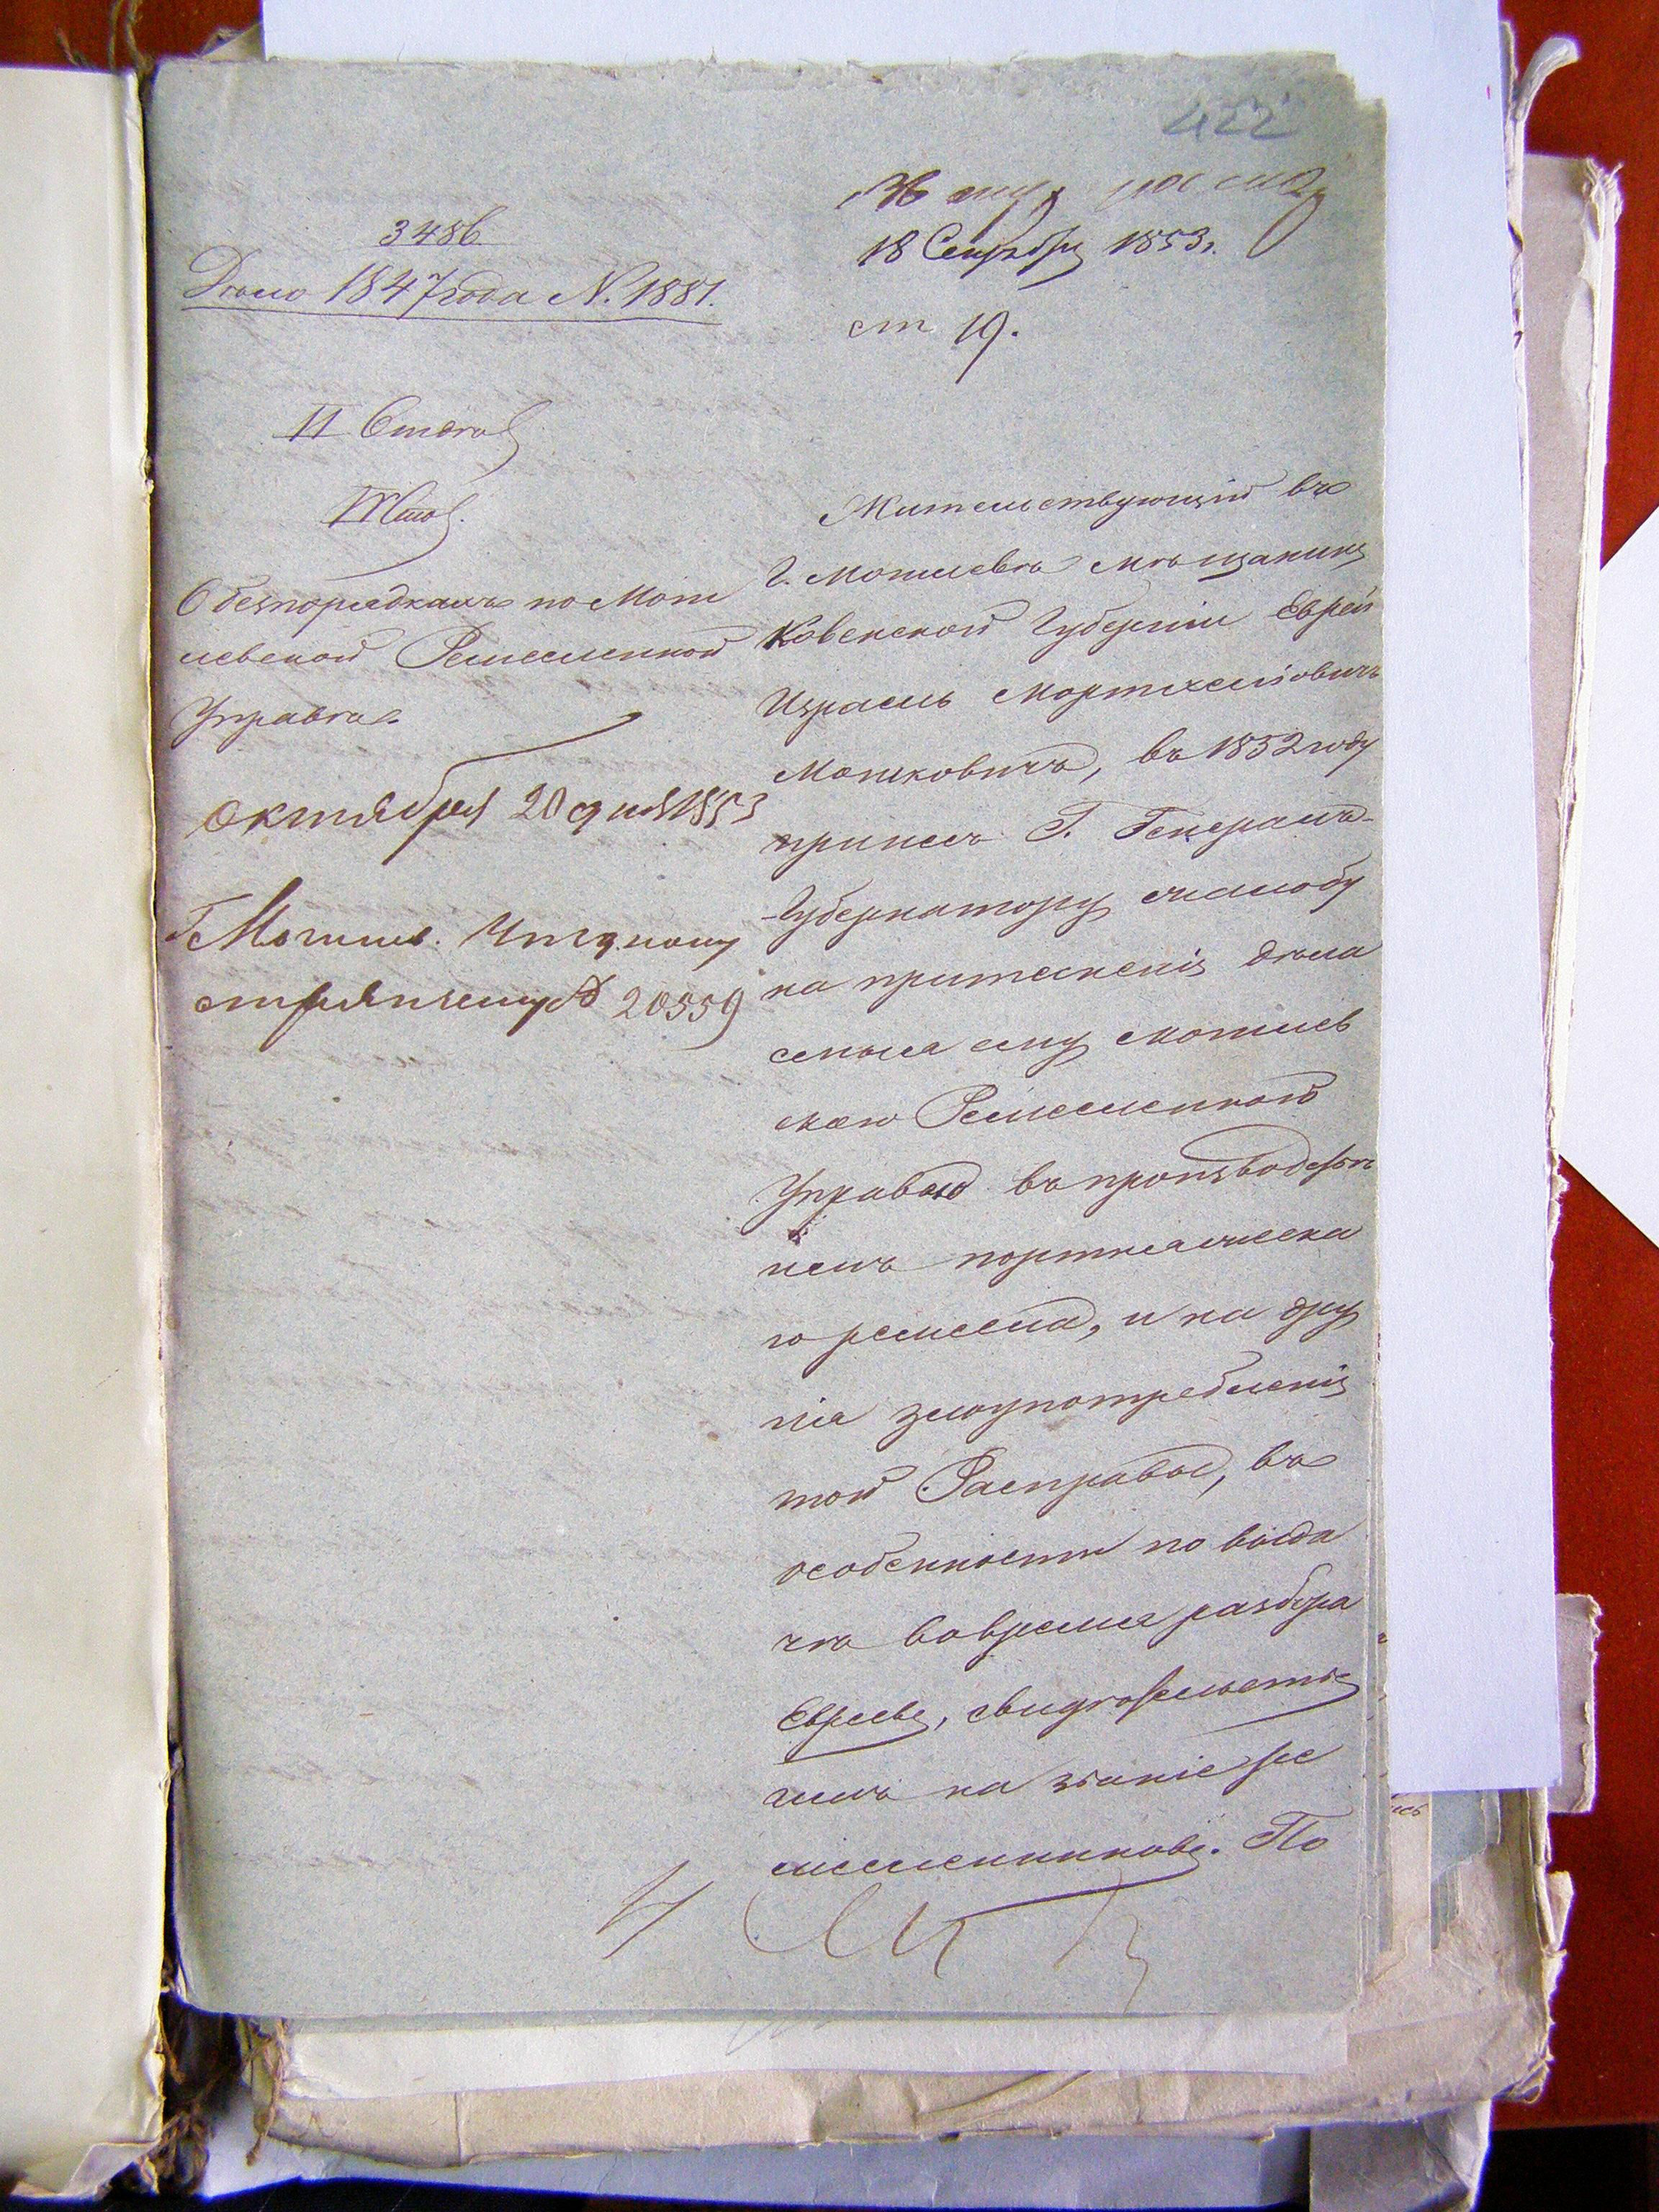 422
3486
Дѣло 1847 года N. 1881.
18 Сентября 1853 г.
ст 19.
II Столъ
О безпорядкахъ по Моги
левской Ремесленной
Управѣ.
Октября 20 дня 1853
Г Могилев. Уѣздному
стряпчему № 20559
Жительствующій въ
г. Могилевѣ мѣщанинъ
Ковенской Губерніи Еврей
Израель Мортхеліовичъ
Мошковичъ, въ 1852 году
принесъ Г. Генералъ-
-Губернатору жалобу
на притесненія дѣла
емыя ему могилев
скою Ремесленной
Управой въ производст
немъ портняжеска
го ремесла, и на дру
гія злоупотребленія
той Расправы, въ
особенности по выда
чѣ вовремя разбора
Евреевъ, свидѣтельств
имъ на званіе ре
месленниковъ. По